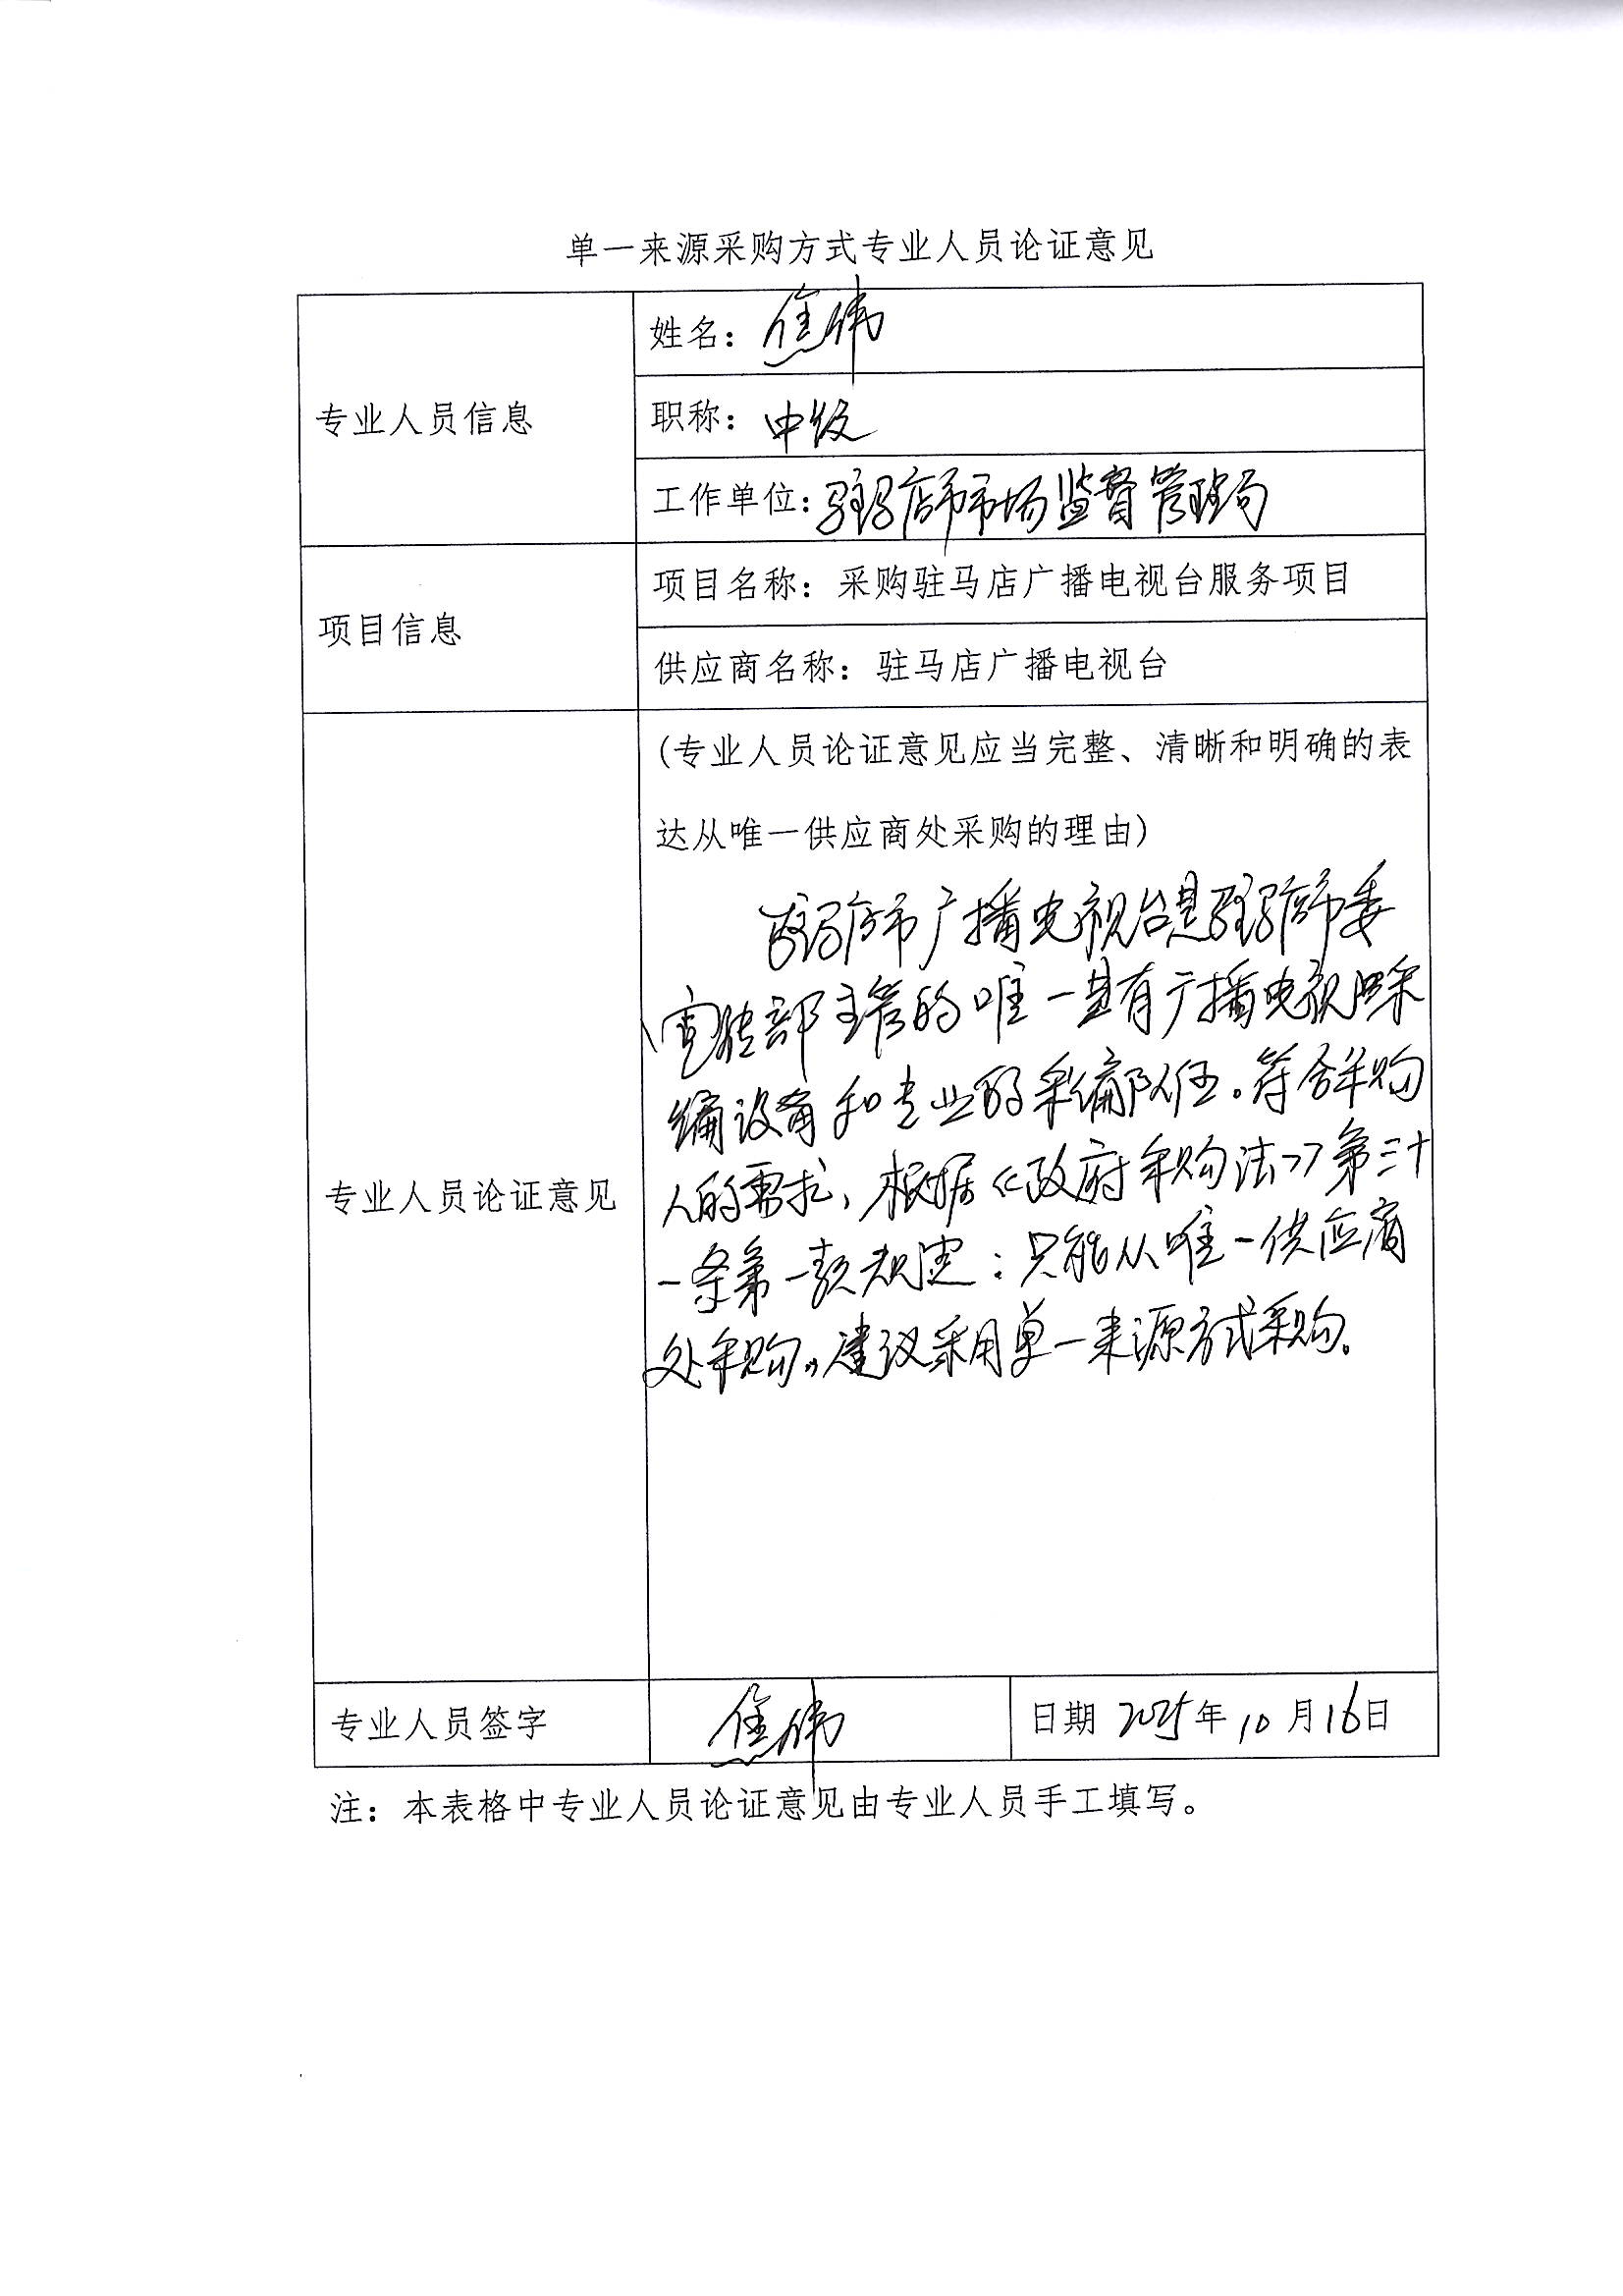 单一来源采购方式专业人员论证意见
专业人员信息
姓名：焦伟
职称：中级
工作单位：驻马店市市场监督管理局
项目信息
项目名称：采购驻马店广播电视台服务项目
供应商名称：驻马店广播电视台
专业人员论证意见
(专业人员论证意见应当完整、清晰和明确的表
达从唯一供应商处采购的理由)
驻马店市广播电视台是驻马店市委
宣传部主管的唯一具有广播电视采
编设备和专业的采编队伍。符合采购
人的需求，根据《政府采购法》第三十
一条第一款规定：只能从唯一供应商
处采购。建议采用单一来源方式采购。
专业人员签字
焦伟
日期 2025年10月16日
注：本表格中专业人员论证意见由专业人员手工填写。